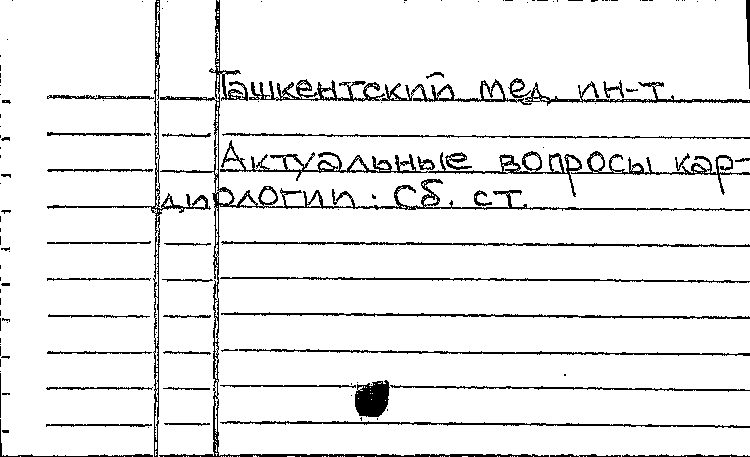 Ташкентский мед. ин-т.
Актуальные вопросы кар-
диологии: Сб. ст.